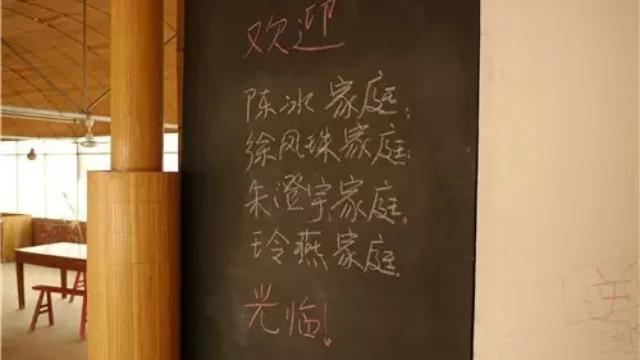 欢迎
陈冰家庭;
徐凤珠家庭;
朱澄宇家庭.
玲燕家庭.
光临!